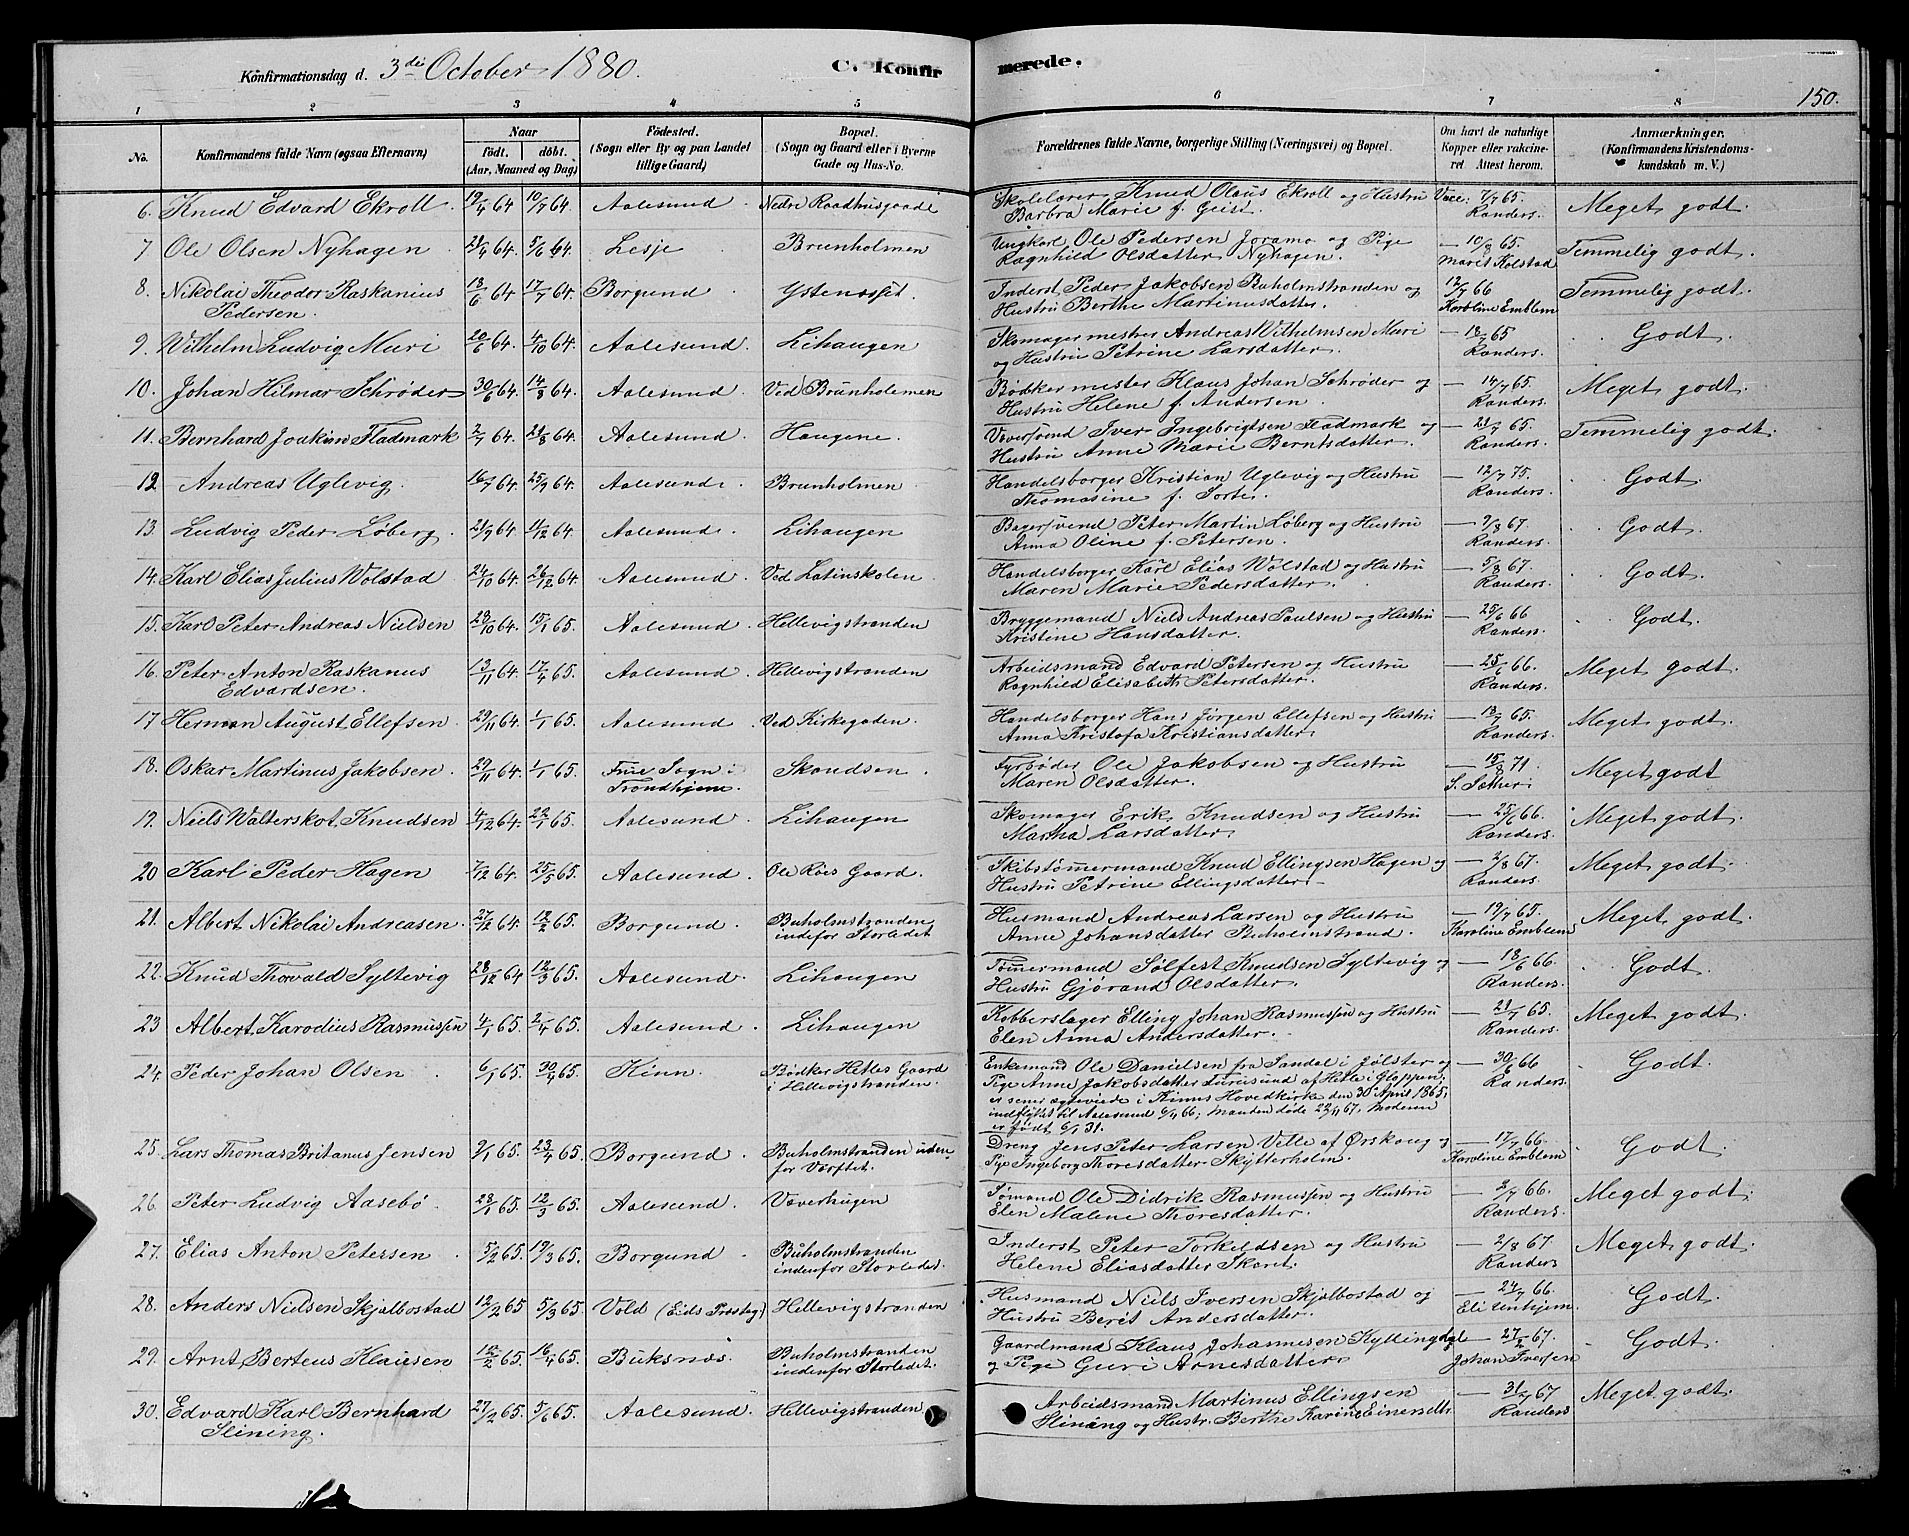 Konfirmationsdag d. 3die October 1880. C. Konfirmerede. 150.
1 2 3 4 5 6 7 8
No. Konfirmandens fulde Navn (ogsaa Efternavn) Naar født. døbt. (Aar, Maaned og Dag) Fødested. (Sogn eller By og paa Landet tillige Gaard) Bopæl. (Sogn og Gaard eller i Byerne Gade og Hus-No. Forældrenes fulde Navne, borgerlige Stilling (Næringsvei) og Bopæl. Om havt de naturlige Kopper eller vakcineret. Attest herom. Anmærkninger. (Konfirmandens Kristendomskundskab m. V.)
6. Knud Edvard Ekroll. 19/4 64. 10/7 64. Aalesund. Nedre Raadhusgaade Skolelærer Knud Olaus Ekroll og Hustru Vacc: 7/7 65. Meget godt.
Barbra Marie f. Geise. Randers.
7 Ole Olsen Nyhagen 21/4 64. 5/6 64. Lesje Brunholmen Ungkarl Ole Pedersen Joramo og Pige — 10/8 65. Temmelig godt.
Ragnhild Olsdatter Nyhagen. Marit Kolstad
8. Nikolai Theodor Raskanius 18/6 64 17/7 64. Borgund Ystenesset. Inderst Peder Jakobsen Buholmstranden og 12/7 66 Temmelig godt.
Pedersen. Hustru Berthe Martinusdatter. Karoline Emblem
9. Wilhelm Ludvig Muri 20/6 64. 4/10 64. Aalesund. Lihaugen Skomagermester Andreas Wilhelmsen Muri — 18/7 65 Godt.
og Hustru Petrine Larsdatter. Randers.
10. Johan Hilmar Schrøder 30/6 64. 14/8 64. Aalesund. Ved Brunholmen Bødkermester Klaus Johan Schrøder og — 14/7 65. Meget godt.
Hustru Helene f. Andersen. Randers.
11. Bernhard Joakim Fladmark 2/7 64. 21/8 64. Aalesund. Haugene. Væversvend Iver Ingebrigtsen Fladmark og — 21/7 65. Temmelig godt.
Hustru Anne Marie Berntsdatter. Randers.
12. Andreas Uglevig. 16/7 64. 25/9 64. Aalesund. Brunholmen Handelsborger Kristian Uglevig og Hustru — 12/7 75. Godt.
Thomasine f. Sorte. Randers.
13. Ludvig Peder Løberg. 21/9 64. 11/12 64. Aalesund. Lihaugen Bagersvend Peter Martin Løberg og Hustru — 9/8 67. Godt.
Anna Oline f. Petersen. Randers.
14. Karl Elias Julius Wolstad 24/10 64. 26/12 64. Aalesund. Ved Latinskolen. Handelsborger Karl Elias Wolstad og Hustru — 5/8 67. Godt.
Maren Marie Pedersdatter. Randers.
15. Karl Peter Andreas Nielsen 28/10 64. 15/1 65. Aalesund. Hellevigstranden Bryggemand Niels Andreas Paulsen og Hustru — 25/6 66 Godt.
Kristene Hansdatter. Randers.
16. Peter Anton Raskanus 13/11 64. 17/4 65. Aalesund. Hellevigstranden Arbeidsmand Edvard Petersen og Hustru — 25/6 66. Meget godt.
Edvardsen. Ragnhild Elisabeth Petersdatter. Randers.
17 Herman August Ellefsen. 29/11 64. 1/1 65. Aalesund. Ved Kirkegaden. Handelsborger Hans Jørgen Ellefsen og Hustru — 13/7 65. Meget godt.
Anna Kristofa Kristiansdatter. Randers.
18. Oskar Martinus Jakobsen. 29/11 64. 1/1 65. Frue Sogn i Skandsen. Fyrbøder Ole Jakobsen og Hustru — 15/8 71. Meget godt
Trondhjem. Maren Olsdatter.
19. Niels Walterskot Knudsen 4/12 64. 22/1 65. Aalesund. Lihaugen Skomager Erik Knudsen og Hustru — 25/6 66. Meget godt.
Martha Larsdatter. Randers.
20 Karl Peder Hagen 7/12 64. 25/5 65. Aalesund. Ole Röes Gaard. Skibstømmermand Knud Ellingsen Hagen og — 2/8 67. Meget godt.
Hustru Petrine Ellingsdatter. Randers.
21. Albert Nikolai Andreasen. 27/12 64. 12/2 65. Borgund. Buholmstranden Husmand Andreas Larsen og Hustru — 19/7 65. Meget godt.
indefor Storledet Anne Johansdatter Buholmstrand. Karoline Emblem
22. Knud Thorvald Syltevig 28/12 64 12/3 65. Aalesund. Lihaugen Tømmermand Sølfest Knudsen Syltevig og — 18/6 66. Godt.
Hustru Gjørand Olsdatter. Randers.
23 Albert Karodius Rasmussen 4/1 65. 2/4 65. Aalesund. Lihaugen Kobberslager Elling Johan Rasmussen og Hustru — 21/7 65. Meget godt.
Elen Anna Andersdatter. Randers.
24. Peder Johan Olsen 6/1 65. 30/4 65. Kinn. Bødker Hetles Gaard Enkemand Ole Danielsen fra Sandal i Jølster og — 30/6 66 Godt.
i Hellevigstranden. Pige Anne Jakobsdatter Furusund af Hetle i Gloppen, Randers.
er sener ægteviede i Kinns Hovedkirke den 30 April 1865,
indflyttet til Aalesund 6/11 66; Manden døde 22/11 67, Moderen
er født 6/1 31.
25. Lars Thomas Britanus Jensen 9/1 65. 23/4 65. Borgund. Buholmstranden uden Dreng Jens Peter Larsen Velle af Ørskoug og — 17/7 66. Godt.
for Værftet. Pige Ingeborg Thoresdatter Skytterholm. Karoline Emblem
26. Peter Ludvig Aasebø. 28/1 65. 12/3 65. Aalesund. Væverhugen Sømand Ole Didrik Rasmussen og Hustru — 2/7 66. Meget godt.
Elen Malene Thoresdatter. Randers.
27. Elias Anton Petersen. 5/2 65. 19/3 65. Borgund. Buholmstranden Inderst Peter Torkildsen og Hustru — 2/8 67. Meget godt.
indenfor Storledet. Helene Eliasdatter Skaret. Randers
28. Anders Nielsen Skjalbostad 12/2 65 5/3 65. Vold (Eids Præsteg.) Hellevigstranden Husmand Niels Iversen Skjalbostad og — 24/7 66. Godt.
Hustru Berit Andersdatter. Eli Unhjem.
29. Arnt Berteus Klausen 12/2 65. 16/4 65. Buksnæs. Buholmstranden Gaardmand Klaus Johannesen Kyllingdal — 27/2 67. Godt.
indenfor Storledet. og Pige Guri Arnesdatter. Johan Iversen
30. Edvard Karl Bernhard 27/2 65. 5/6 65. Aalesund. Hellevigstranden Arbeidsmand Martinus Ellingsen — 31/7 67 Meget godt.
Slining. Slinäng og Hustr. Berthe Karine Einersdtr. Randers